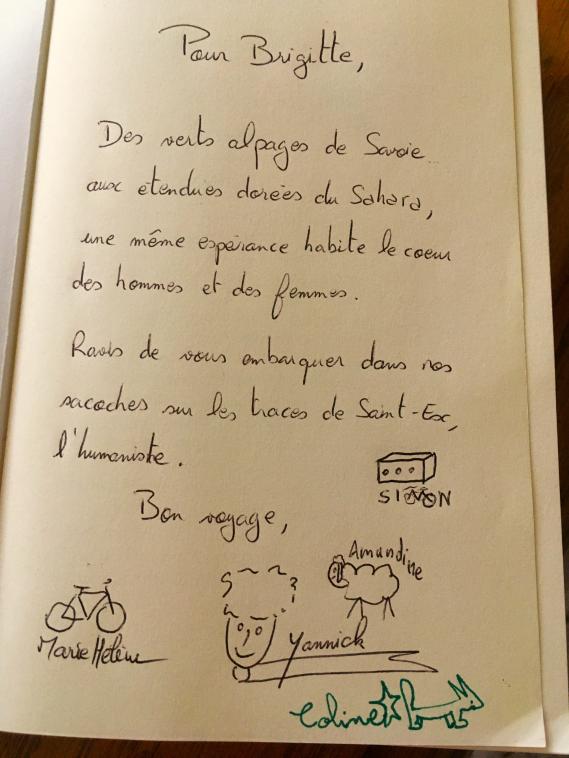 Pour Brigitte,
Des verts alpages de Savoie
aux étendues dorées du Sahara,
une même espérance habite le coeur
des hommes et des femmes.
Ravis de vous embarquer dans nos
sacoches sur les traces de Saint-Ex,
l'humaniste.
SIMON
Bon voyage,
Amandine
Marie Hélène
Yannick
Coline